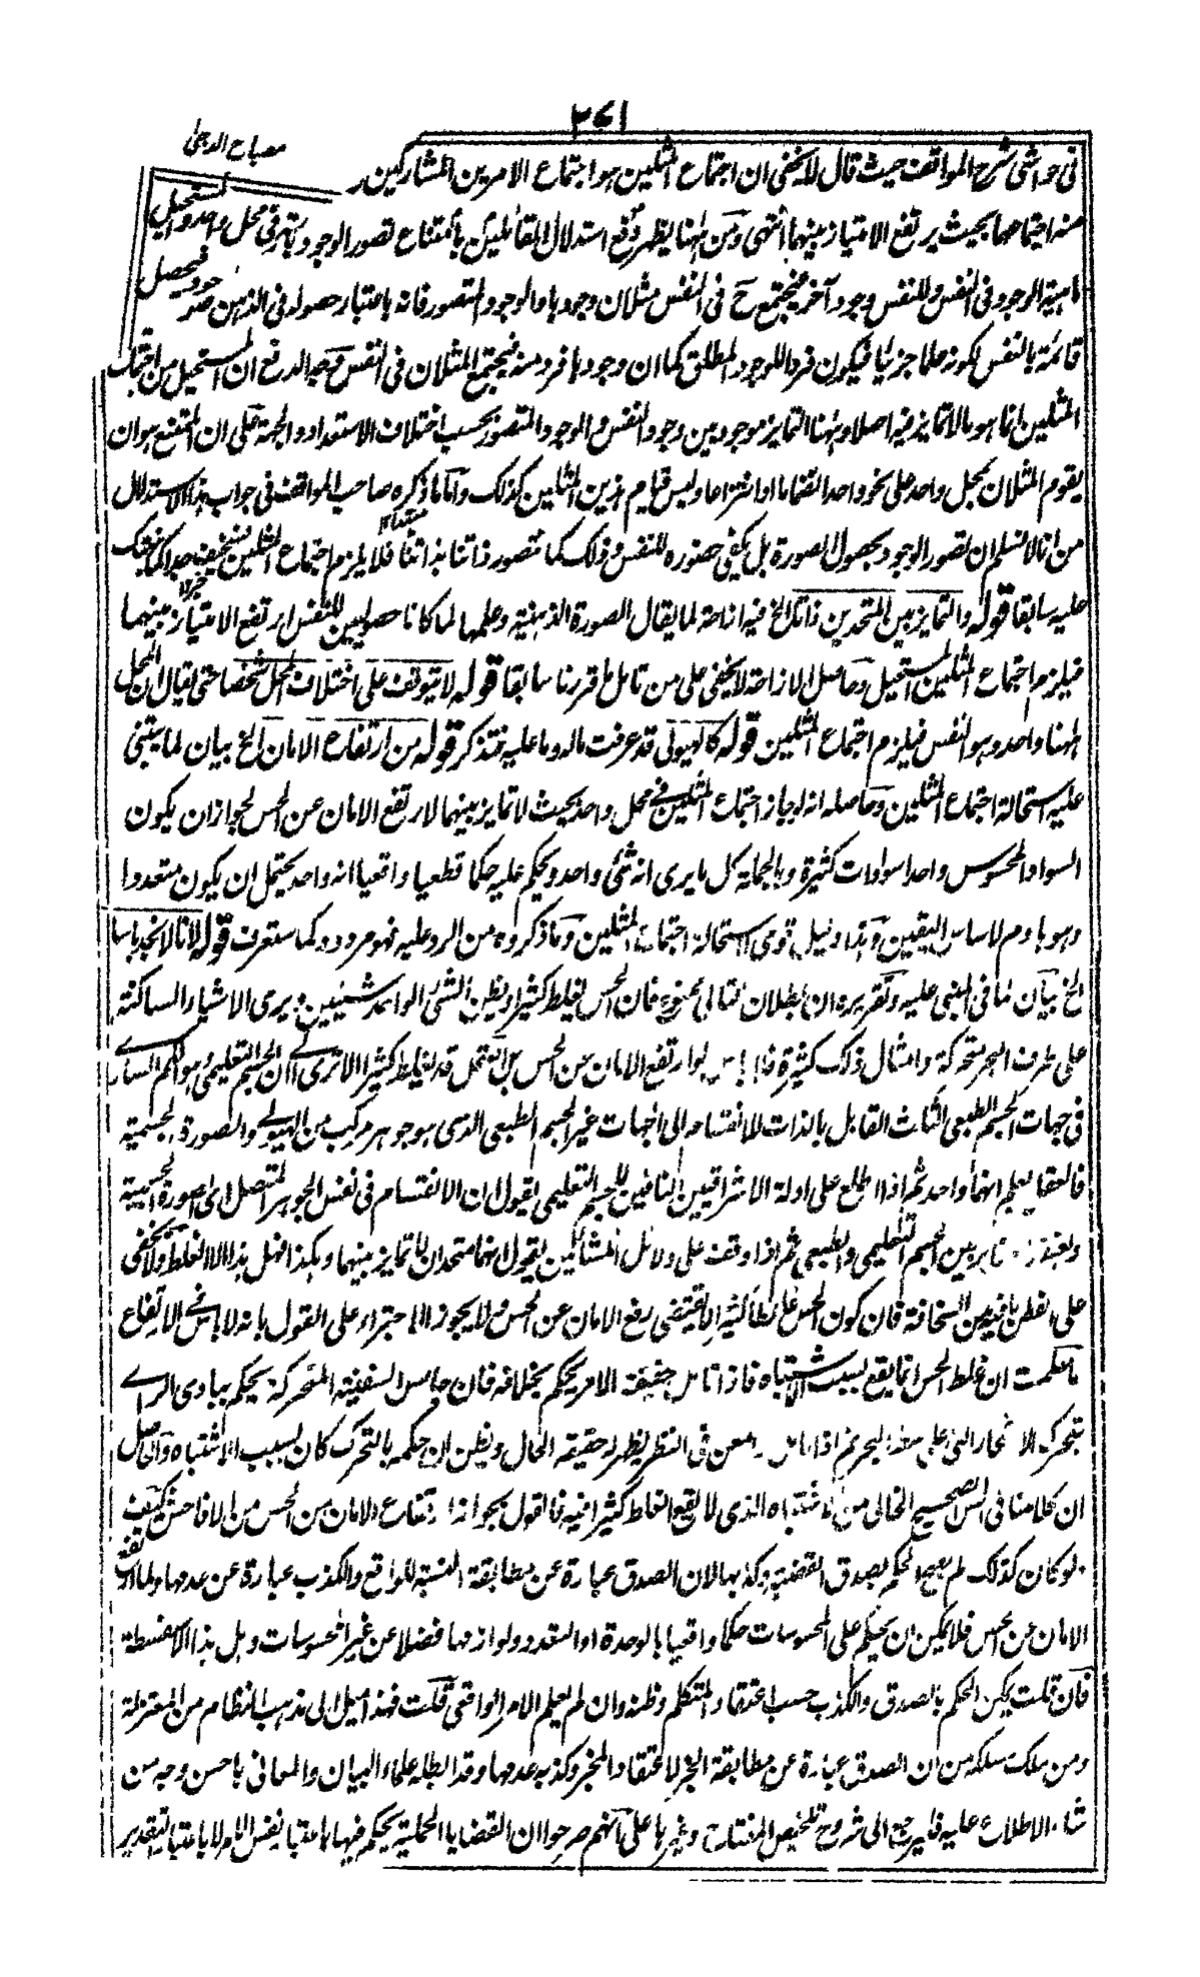 ٣٧١
مصباح الدجى
فى حواشى شرح المواقف حيث قال لا يخفى ان اجتماع المثلين هو اجتماع الامرين المتشاركين
فى محل واحد والمستحيل منه اجتماعهما بحيث يرتفع الامتياز بينهما انتهى ومن ههنا يظهر دفع استدلال القائلين بامتناع تصور الوجود بانه
ماهية الوجود فى النفس وللنفس وجود آخر فيجتمع ح فى النفس مثلان وجودها والوجود المتصور فانه باعتبار حصوله فى الذهن
قائمة بالنفس لكونه علما جزئيا فيكون فردا للوجود المطلق كما ان وجودها فرد منه فيجتمع المثلان فى النفس وجه الدفع ان المستحيل من اجتماع
المثلين انما هو ما لا تمايز فيه اصلا وههنا التمايز موجود بين وجود النفس والوجود المتصور بحسب اختلاف الاستعداد والجهة على ان الممتنع هو ان
يقوم المثلان بمحل واحد على نحو واحد انضماما او انتزاعا وليس قيام هذين المثلين كذلك واما ما ذكره صاحب المواقف فى جواب هذا الاستدلال
من انا لا نسلم ان تصور الوجود بحصول الصورة بل يكفى حضوره للنفس وذلك كما نتصور ذاتنا بذاتنا فلا يلزم اجتماع المثلين فسخيف جدا كما نبهناك
عليه سابقا قوله والتمايز بين المتحدين ذاتا الخ فيه ازاحة لما يقال الصورة الذهنية وعلمها لما كانا حصوليين للنفس ارتفع الامتياز بينهما
فيلزم اجتماع المثلين المستحيل وحاصل الازاحة لا يخفى على من تامل ما قررنا سابقا قوله لا يتوقف على اختلاف المحل شخصا حتى يقال ان المحل
ههنا واحد وهو النفس فيلزم اجتماع المثلين قوله كالهيولى قد عرفت ماله وما عليه فتذكر قوله من ارتفاع الامان الخ بيان لما يبتنى
عليه استحالة اجتماع المثلين وحاصله انه لو جاز اجتماع المثلين فى محل واحد بحيث لا تمايز بينهما لارتفع الامان عن الحس لجواز ان يكون
السواد المحسوس واحدا سوادات كثيرة وبالجملة كل ما يرى انه شئ واحد ويحكم عليه حكما قطعيا واقعيا انه واحد يحتمل ان يكون متعددا
وهو هادم لاساس اليقين وهذا دليل قوى لاستحالة اجتماع المثلين وما ذكروه من الرد عليه فهو مردود كما ستعرف قوله لانا لا نجد باسا
الخ بيان لما فى المبنى عليه وتقريره ان بطلان التالى ممنوع فان الحس يغلط كثيرا ويظن الشئ الواحد شيئين ويرى الاشياء الساكنة
على طرف البحر متحركة وامثال ذلك كثيرة لو ارتفع الامان من الحس بل العقل قد يغلط كثيرا الا ترى الى ان الجسم التعليمى وهو الكم السارى
فى جهات الجسم الطبعى الثلث القابل بالذات للانقسام الى الجهات غير الجسم الطبعى الذى هو جوهر مركب من الهيولى والصورة الجسمية
فالعقل يعلم انهما واحد ثم اذا اطلع على ادلة الاشراقيين النافين للجسم التعليمى يقول ان الانقسام فى نفس الجوهر المتصل اى الصورة الجسمية
بين الجسم التعليمى والطبعى ثم اذا وقف على دلائل المشائين يقول انهما متحدان لا تمايز بينهما وهكذا فهل هذا الا الغلط ولا يخفى
على الفطن ما فيه من السخافة فان كون الحس غالطا كثيرا لا يقتضى رفع الامان عن الحس ولا يجوز الاجتراء على القول بانه لا باس فى الارتفاع
ما علمت ان غلط الحس انما يقع بسبب الاشتباه فاذا تامل حقيقة الامر يحكم بخلافه فان جالس السفينة المتحركة يحكم ببادى الراى
بتحرك الاشجار التى على البحر ثم اذا تامل وامعن فى النظر يظهر له حقيقة الحال ويظن ان حكمه بالتحرك كان بسبب الاشتباه والحاصل
ان كلامنا فى الحس الصحيح الخالى من الاشتباه الذى لا يقع الغلط كثيرا فيه فالقول بجواز ارتفاع الامان من الحس من الافاحش كيف
لو كان كذلك لم يصح الحكم بصدق القضية وكذبها لان الصدق عبارة عن مطابقة النسبة للواقع والكذب عبارة عن عدمها ولما ارتفع
الامان عن الحس فلا يمكن ان يحكم على المحسوسات حكما واقعيا بالوحدة او التعدد ولوازمها فضلا عن غير المحسوسات وهل هذا الا سفسطة
فان قلت يمكن الحكم بالصدق والكذب حسب اعتقاد المتكلم وظنه وان لم يعلم الامر الواقعى قلت فهذا ميل الى مذهب النظام من المعتزلة
ومن سلك مسلكه من ان الصدق عبارة عن مطابقة الخبر لاعتقاد المخبر وكذبه عدمها وقد ابطله علماء البيان والمعانى باحسن وجه من
شاء الاطلاع عليه فليرجع الى شروح تلخيص المفتاح وغيرها على انهم صرحوا ان القضايا الحملية يحكم فيها باعتبار نفس الامر لا باعتبار التقدير